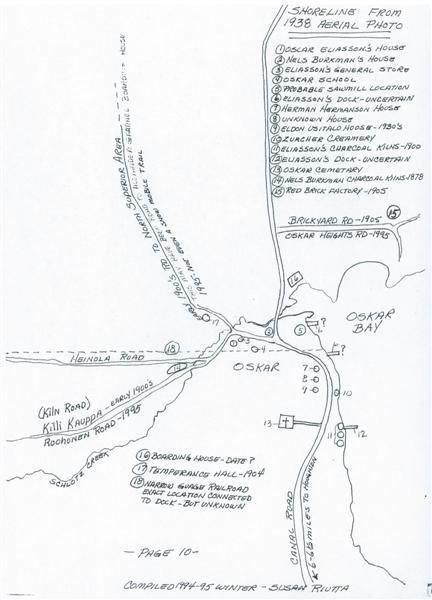 SHORELINE FROM
1938 AERIAL PHOTO
① OSCAR ELIASSON'S HOUSE
② NELS BURKMAN'S HOUSE
③ ELIASSON'S GENERAL STORE
④ OSKAR SCHOOL
⑤ PROBABLE SAWMILL LOCATION
⑥ ELIASSON'S DOCK - UNCERTAIN
⑦ HERMAN HERMANSON HOUSE
⑧ UNKNOWN HOUSE
⑨ ELDON USITALO HOOSE - 1930'S
⑩ ZURCHER CREAMERY
⑪ ELIASSON'S CHARCOAL KILNS - 1900
⑫ ELIASSON'S DOCK - UNCERTAIN
⑬ OSKAR CEMETARY
⑭ NELS BURKMAN CHARCOAL KILNS - 1878
⑮ RED BRICK FACTORY - 1905
BRICKYARD RD - 1905
⑮
OSKAR HEIGHTS RD - 1995
NORTH SUPERIOR AREA
BOARDING HOUSE
EARLY 1900'S RD TO
1995 - NOT EVEN A
SNOW MOBILE TRAIL
16
OSKAR
BAY
17
②
⑤
6
?
①
3
4
?
⑱
HEINOLA ROAD
14
OSKAR
7
8
9
10
(KILN ROAD)
KILLI KAUPPA - EARLY 1900'S
ROOHONEN ROAD - 1995
SCHLOTZ CREEK
13
11
12
⑯ BOARDING HOUSE - DATE?
⑰ TEMPERANCE HALL - 1904
⑱ NARROW GUAGE RAILROAD
EXACT LOCATION CONNECTED
TO DOCK - BUT UNKNOWN
CANAL ROAD
MILES TO HOUGHTON
- PAGE 10 -
COMPILED 1994-95 WINTER - SUSAN RIUTTA